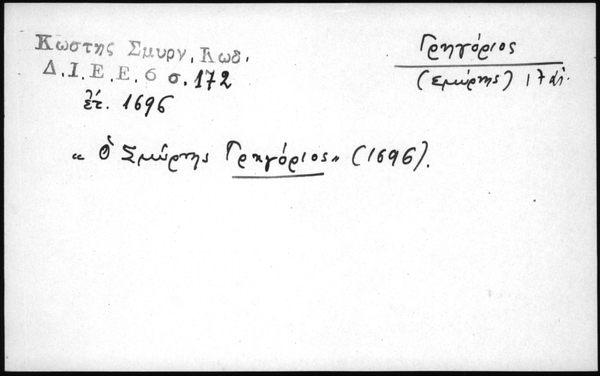 Κωστης Σμυρν, Κωδ.
Δ.Ι.Ε.Ε. 6 σ. 172
ἔτ. 1696
Γρηγόριος
(Σμύρνης) 17 αἰ.
« Ὁ Σμύρνης Γρηγόριος » (1696).